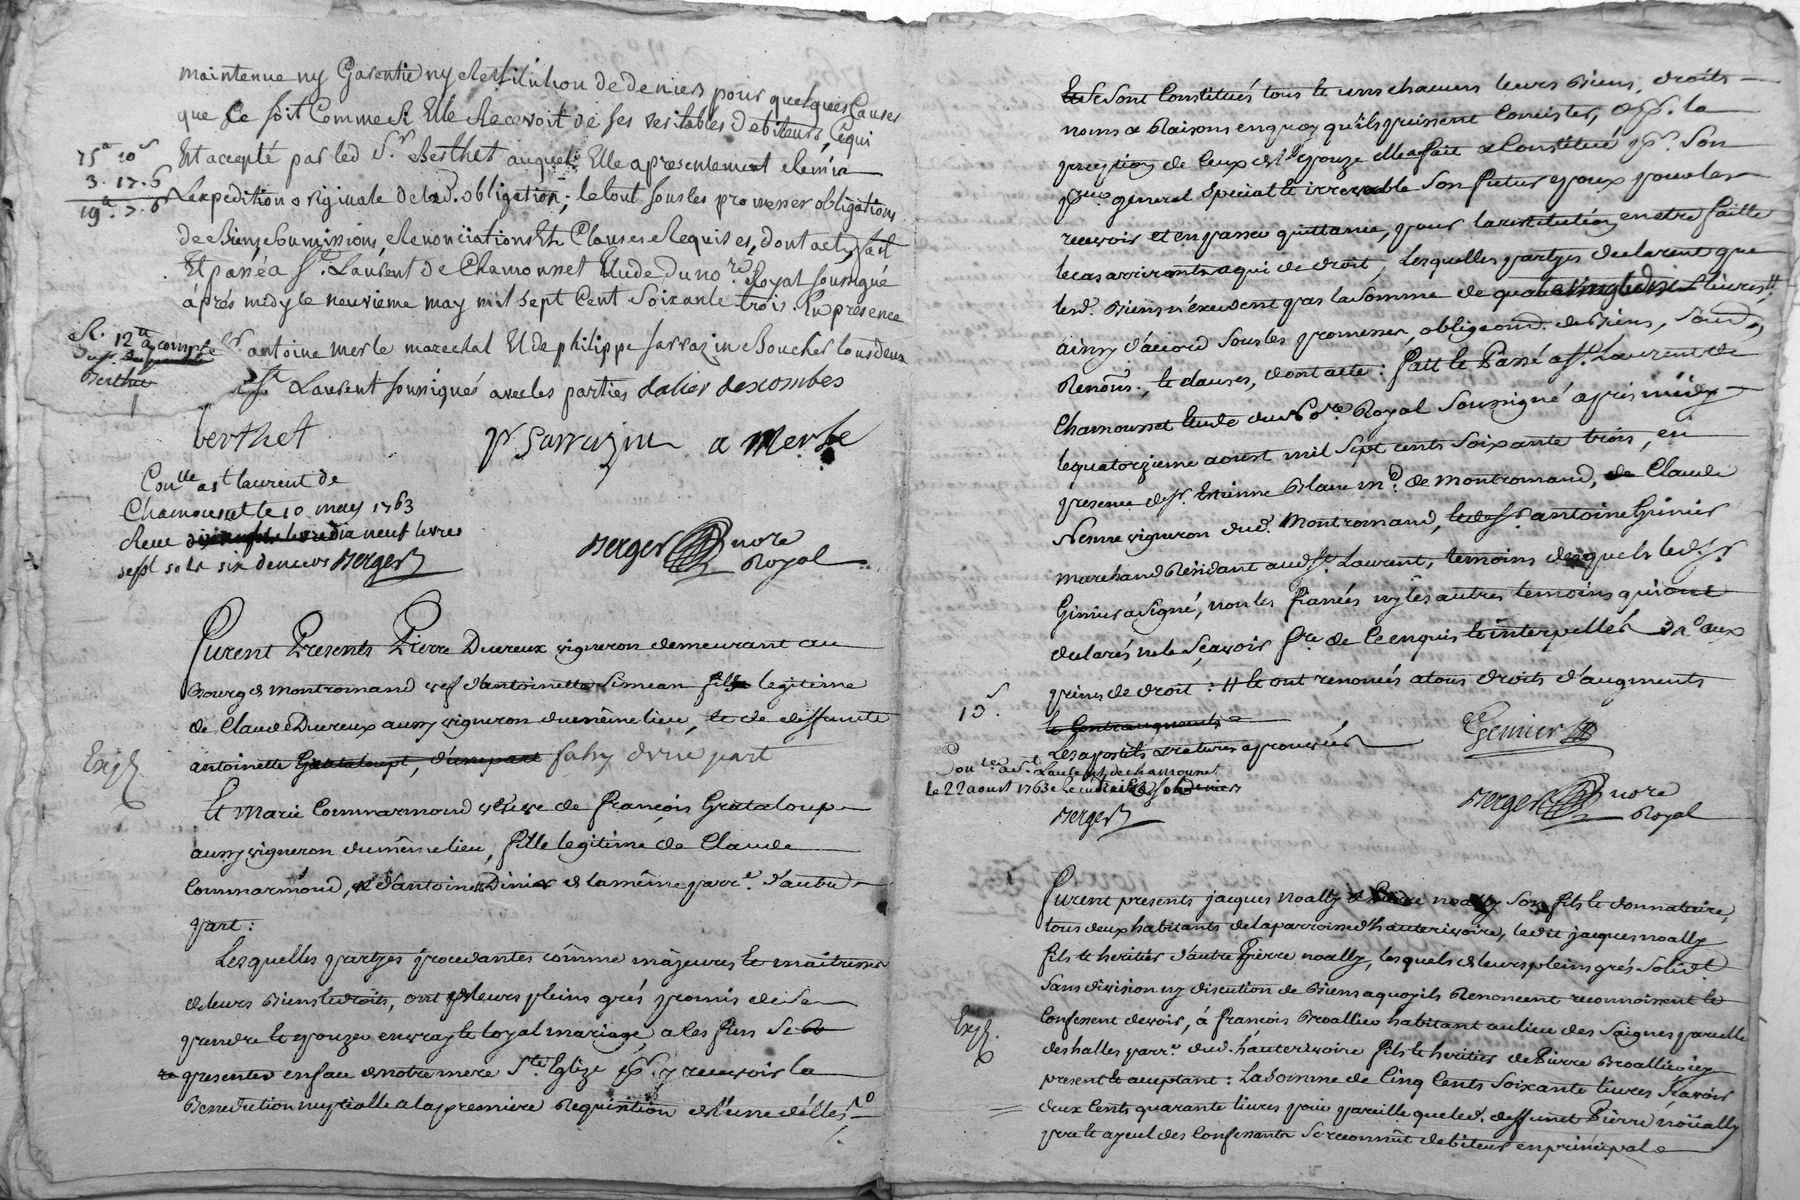 maintenue ny Garentie ny Restitution de deniers pour quelques Causes
que Ce soit Comme Si Elle Recevoit de ses veritables Debiteurs, Cequi
Est accepté par led Sr. Berthet auquel Elle apresentement Remis
Lexpedition originale de lad. obligation; le tout sous les promesses obligations
de Biens, Soumissions, Renonciations Et Clauses Requises, dont acte, fait
Et passé a St. Laurent de Chamousset Etude du nore. Royal soussigné
áprés midy le neuvieme may mil sept Cent Soixante trois. En presence
antoine merle marechal Et de philippe sarrazin Boucher tous deux
St. Laurent soussignés avec les parties
15 10 s
3. 17. 6
19. 7. 6
R. 12 acompte
Berthet
berthet
pr Sarrazin a Merle
Conlle a st laurent de
Chamousset le 10 may 1763
Receu dix neuf livres
sept sols six deniers Berger
Berger nore
Royal
Furent Presents Pierre Ducreux vigneron demeurant au
Bourg de montromand vef d'antoinette Simean fils legitime
de Claude Ducreux aussy vigneron du même lieu, et de deffunte
antoinette Grataloup, d'une part fahy d'une part
Et Marie Commarmond veuve de françois Grataloup
aussy vigneron du même lieu, fille legitime de Claude
Commarmond, et d'antoine Dinier de la même parre. d'autre
part:
Lesquelles partyes procedantes cômme majeures et maitresses
de leurs Biens et droits, ont de leurs pleins grés promis de Se
prendre et epouzer en vray et loyal mariage, a Ces fins Se
presenter en face de notre mere Ste Eglize pr. y recevoir la
Benediction nuptialle a la premiere Requisition de l'une d'elles
Se Sont Constitués tous et uns chacuns leurs Biens, droits
noms et Raisons en quoy qu'ils puissent Consister,
preption de Ceux de l'epouze elle a fait et Constitué pr. Son
general Special et irrevocable Son futur epoux pour les
recevoir et en passer quittance, pour la restitution en etre faitte
le cas arrivant a qui de droit, Lesquelles partyes declarent que
lesd. Biens n'excedent pas la Somme de quatre vingt dix livres
ainsy d'accord Sous les promesses, obligeond. de Biens,
Renons. et clauses, dont acte: fait et Passé a St. Laurent de
Chamousset Etude du Nore. Royal Soussigné aprés midy
le quatorzieme aoust mil Sept cents Soixante trois, en
presence de Sr. Etienne Blanc md. de montromand, de Claude
vigneron dud. Montromand, antoine Ginier
marchand Residant aud. St. Laurent, temoins desquels led. Sr.
Ginier a Signé, non les fiancés ny les autres temoins qui ont
declarés ne le Sçavoir fre. de Ce enquis et interpellés
prins de droit: et ont renoncés a tous droits d'augments
Les apostils et ratures aprouvées
15 s.
Genier
Conlé a St. Laurent de chamousset
le 22 aoust 1763 Receu
Berger
Berger nore
Royal
Furent presents jacques noally et Pierre noally Son fils et donnataire,
tous deux habitants de la parroisse d'hauterivoire, ledit jacques noally
fils et heritier d'autre Pierre noally, lesquels de leurs pleins grés Solidt
Sans division ny discution de Biens a quoy ils Renoncent reconnoissent et
Confessent devoir, á françois Broallier habitant au lieu des Saignes parcelle
des halles parre. dud. hauterivoire fils et heritier de Pierre Broallier icy
present et acceptant: La Somme de Cinq Cents Soixante livres Sçavoir
deux Cents quarante livres pour pareille que led. deffunt Pierre noüally
pere et ayeul des Confessants Se reconnût debiteur en principal